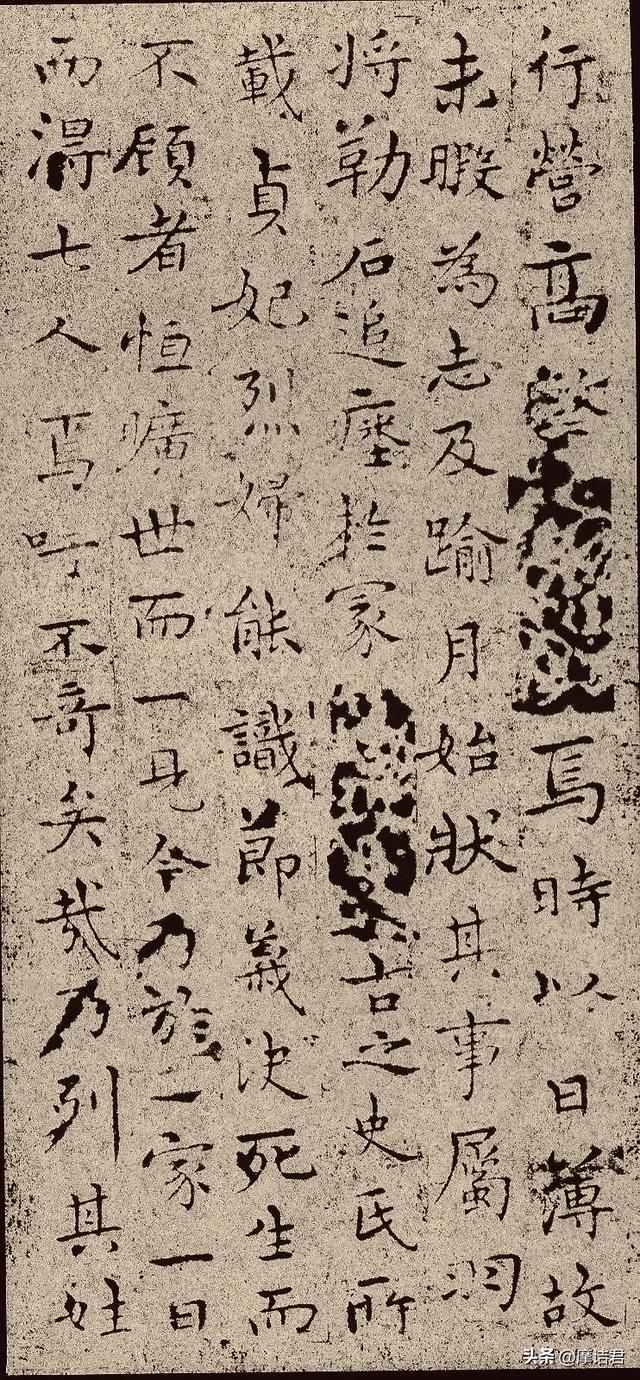 行營高焉時以日薄故
未暇為志及踰月始狀其事屬羽
將勒石追瘞於冢古之史氏所
載貞妃烈婦能識節義決死生而
不顧者恒曠世而一見今乃於一家一日
而得七人焉吁不奇矣哉乃列其姓
头条 @摩诘君